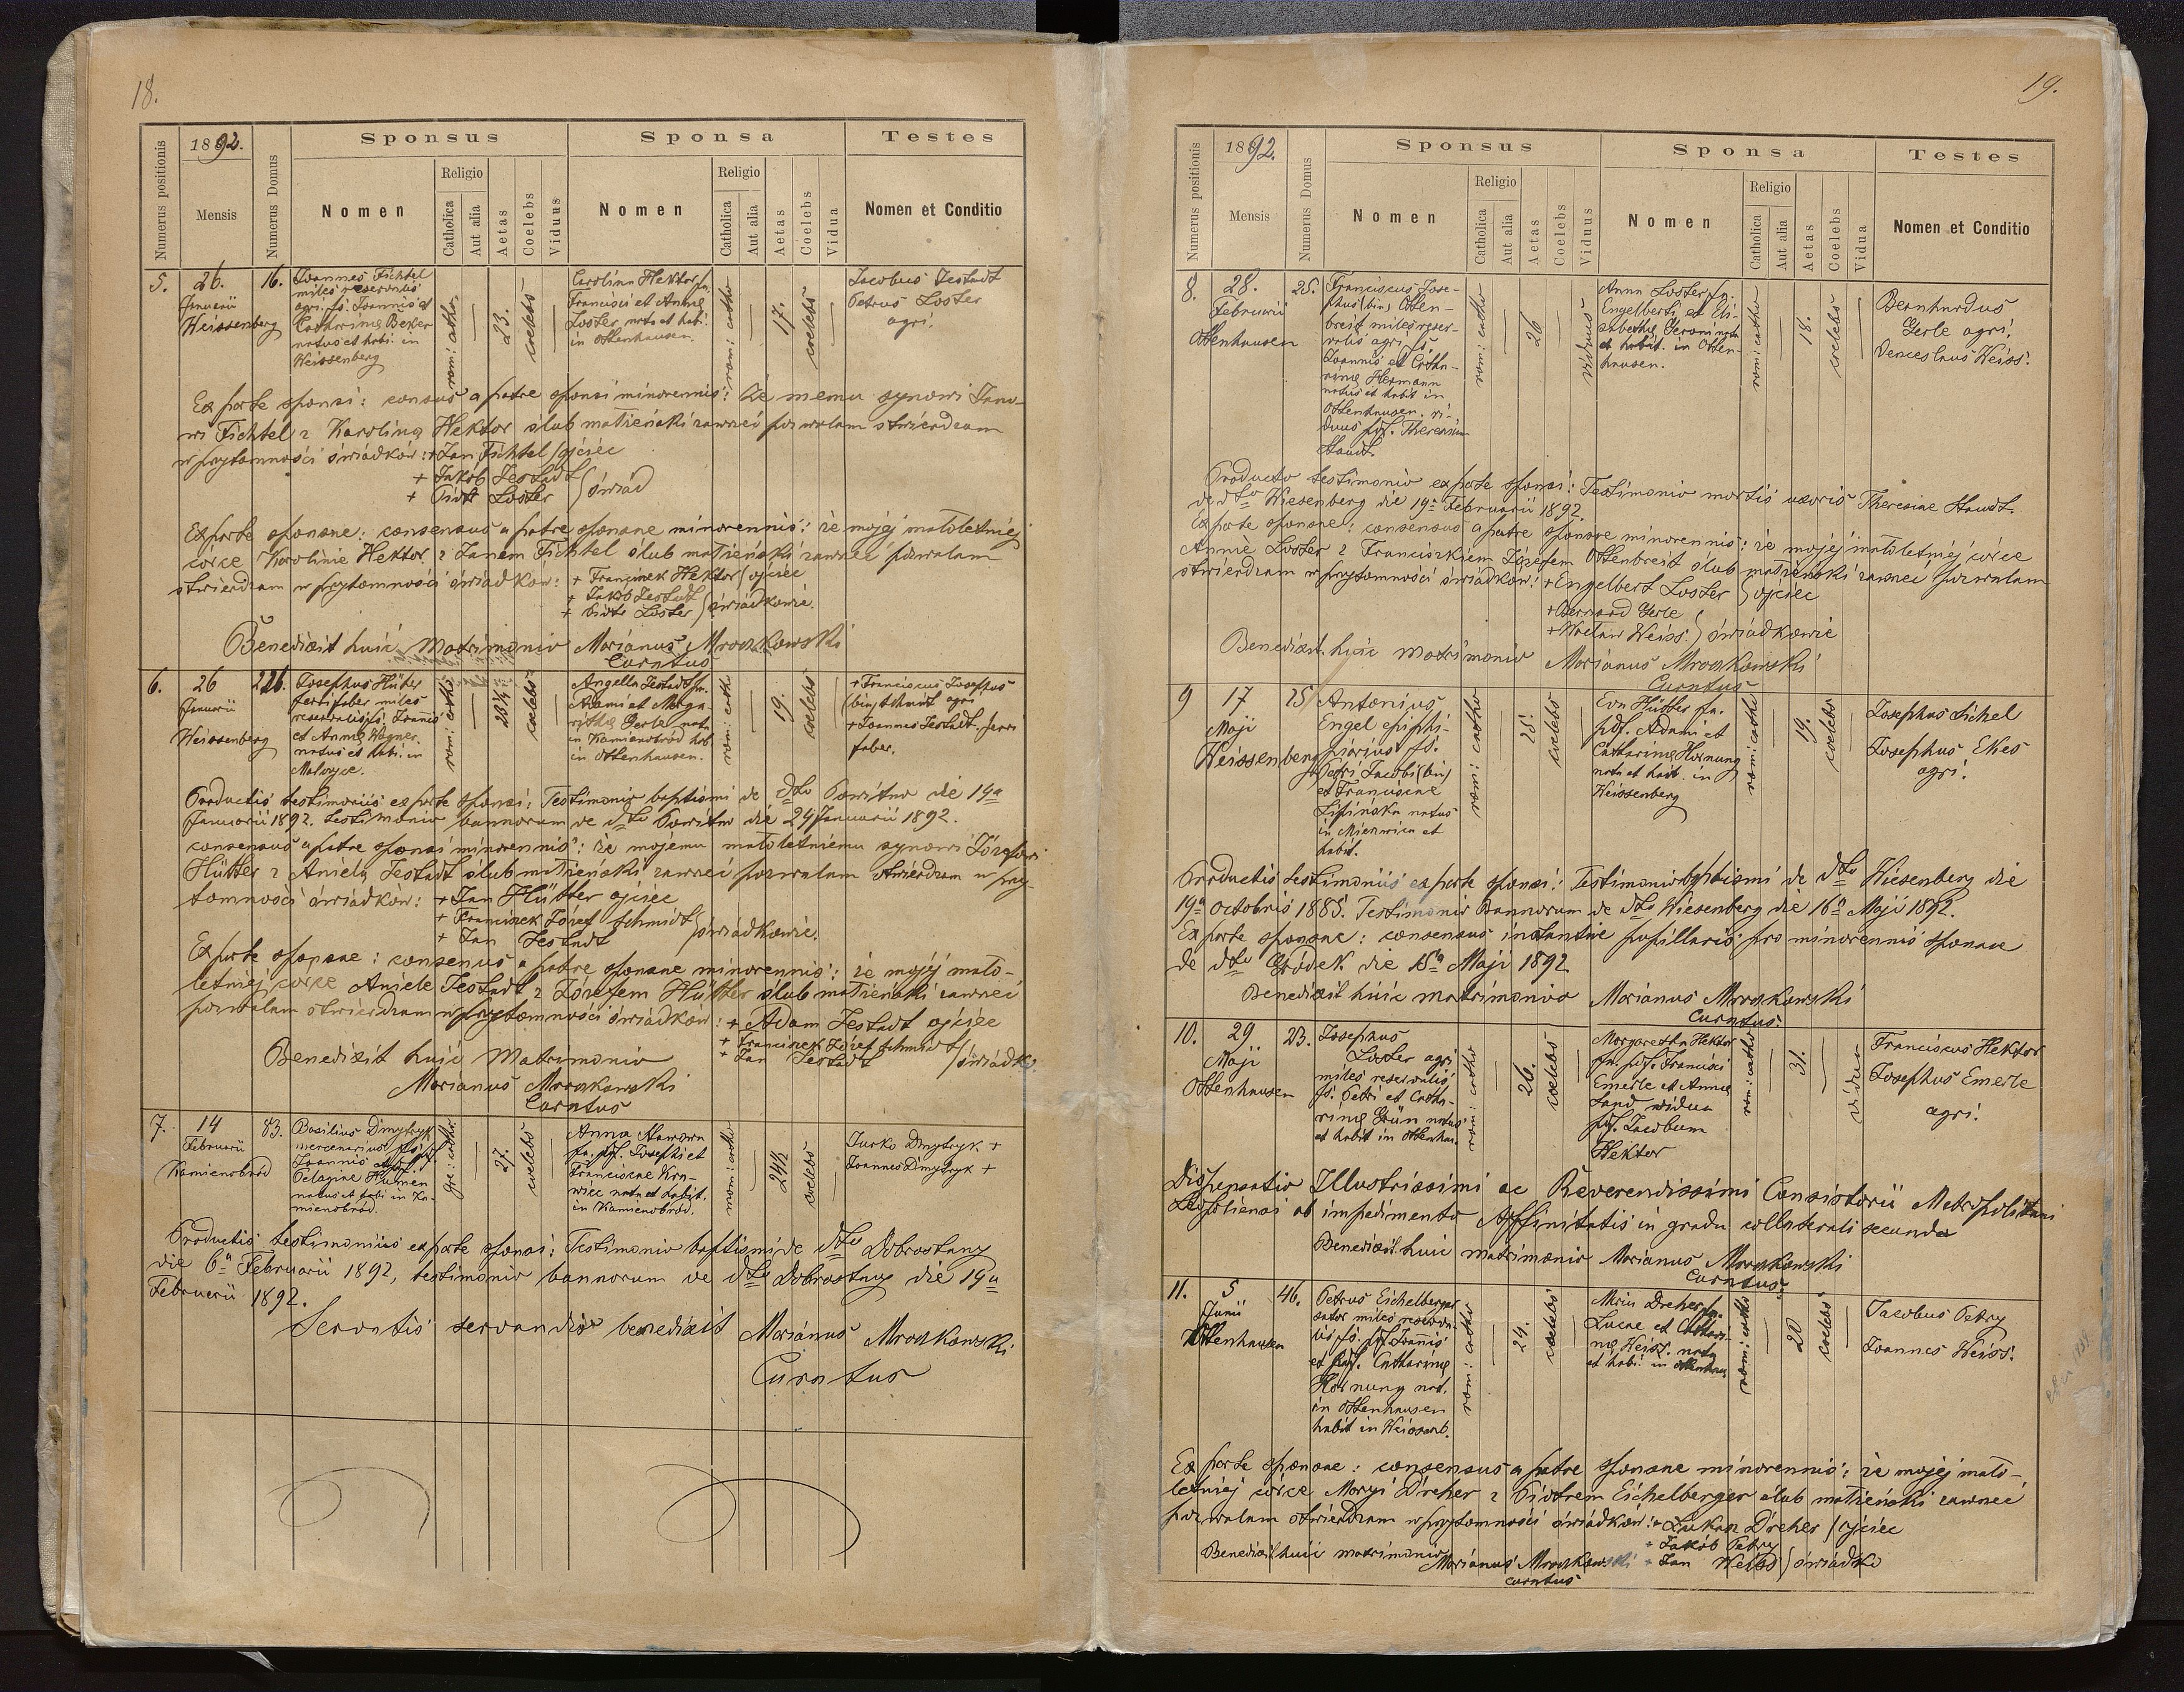 18.
1892.
Numerus positionis
Mensis
Numerus Domus
Sponsus
Nomen
Religio
Catholica
Aut alia
Aetas
Coelebs
Vidus
Sponsa
Nomen
Religio
Catholica
Aut alia
Aetas
Coelebs
Vidua
Testes
Nomen et Conditio
5.
26.
Januarii
Weissenberg
16.
Joannes Fichtel
miles reservatus
agri. fs. Joannis et
Catharinę Beker
natus et habi. in
Weissenberg
rom: catho.
23.
coelebs
Carolina Hektor fa.
Francisci et Annę
Loster nata et habi.
in Ottenhausen.
rom: catho
17.
coelebs
Jacobus Jestadt
Petrus Loster
agri.
Ex parte sponsi: consensus a patre sponsi minorennis: że memu synowi Jano-
wi Fichtel z Karoliną Hektor ślub małżeński zawrzeć pozwalam stwierdzam
w przytomności świadków: + Jan Fichtel / ojciec
+ Jakób Jestadt
+ Piotr Loster ) świad
Ex parte sponsae: consensus a patre sponsae minorennis: że mojéj małoletniéj
córce Karolinie Hektor z Janem Fichtel ślub małżeński zawrzeć pozwalam
stwierdzam w przytomności świadków: + Franciszek Hektor / ojciec
+ Jakób Jestadt
+ Piotr Loster ) świadkowie.
Benedixit huic matrimonio Marianus Mroczkowski
Curatus
6.
26
Januarii
Weissenberg
226.
Josephus Hütter
ferri faber miles
reservatus fs. Joannis
et Annę Wagner.
natus et habi. in
rom: catho
23½
coelebs
Angella Jestadt fa.
Adami et Marga-
rithę Gerle nata
in Kamienobród hab.
in Ottenhausen.
rom: catho
19.
coelebs
+ Franciscus Josephus
(bin) Schmidt agri
+ Joannes Jestadt. ferri
faber.
Productis testimoniis ex parte sponsi: Testimonio baptismi de dto Powitno die 19a
Januarii 1892. testimonio bannorum de dto Powitno die 24 Januarii 1892.
consensus a patre sponsi minorennis: że mojemu małoletniemu synowi Józefowi
Hütter z Anielą Jestadt ślub małżeński zawrzeć pozwalam stwierdzam w przy-
tomności świadków: + Jan Hütter ojciec
+ Franciszek Józef Schmidt
+ Jan Jestadt ) świadkowie.
Ex parte sponsae: consensus a patre sponsae minorennis: że mojéj mało-
letniéj córce Aniele Jestadt z Józefem Hütter ślub małżeński zawrzeć
pozwalam stwierdzam w przytomności świadków: + Adam Jestadt ojciec
+ Franciszek Józef Schmidt
+ Jan Jestadt / świadk.
Benedixit huic Matrimonio
Marianus Mroczkowski
Curatus
7.
14
Februarii
Kamienobród
83.
Basilius Dmytryk
mercenarius fs. pf.
Joannis et pf.
Pelaginę Humen
natus et habi in Ka-
mienobród.
gre: catho.
27.
coelebs
Anna
fa. pf. Josephi et
Franciscae Kra-
wiec nata et habit.
in Kamienobród.
rom: catho
24½
coelebs
Jurko Dmytryk +
Joannes Dmytryk +
Productis testimoniis ex parte sponsi: Testimonio baptismi de dto Dobrostany
die 6a Februarii 1892, testimonio bannorum de dto Dobrostany die 19a
Februarii 1892.
Servatis servandis benedixit Marianus Mroczkowski
Curatus
19.
1892.
Numerus positionis
Mensis
Numerus Domus
Sponsus
Nomen
Religio
Catholica
Aut alia
Aetas
Coelebs
Vidus
Sponsa
Nomen
Religio
Catholica
Aut alia
Aetas
Coelebs
Vidua
Testes
Nomen et Conditio
8.
28.
Februarii
Ottenhausen
25.
Franciscus Jose-
phus (bin) Otten-
breit miles reser-
vatus agri. fs.
Joannis et Catha-
rinę Hermann
natus et habit in
Ottenhausen. vi-
duus pf. Theresiam
Staudt.
rom: catho
26
viduus
Anna Loster fa.
Engelberti et Eli-
sabethę Geromi nata
et habit. in Otten-
hausen.
rom: catho
18.
coelebs
Bernhardus
Gerle agri.
Venceslaus Weiss.
Producto testimonio ex parte sponsi: Testimonio mortis uxoris Theresiae Staudt.
de dto Wiesenberg die 19a Februarii 1892
Ex parte sponsae: consensus a patre sponsae minorennis: że mojéj małoletniéj córce
Annie Loster z Franciszkiem Józefem Ottenbreit ślub małżeński zawrzeć pozwalam
stwierdzam w przytomności świadków: + Engelbert Loster ) ojciec
+ Bernard Gerle
+ Wacław Weiss. ) świadkowie
Benedixit huic matrimonio Marianus Mroczkowski
Curatus
9
17
Maji
Weissenberg
25
Antonius
Engel
fs.
Petri Jacobi (bin)
et Franciscae
Lipińska natus
in Mierzwica et
habit.
rom: catho
25.
coelebs
Eva Hütter fa.
pdf. Adami et
Catharinę Hornung
nata et habit. in
Weissenberg
rom: catho
19.
coelebs
Josephus Fichel
Josephus Ekes
agri.
Productis testimoniis ex parte sponsi: Testimonio baptismi de dto Wiesenberg die
19a Octobris 1885. Testimonio Bannorum de dto Wiesenberg die 16a Maji 1892.
Ex parte sponsae: consensus instantiae pupillaris pro minorennis sponsae
de dto Gródek die 15a Maji 1892
Benedixit huic matrimonio Marianus Mroczkowski
Curatus.
10.
29
Maji
Ottenhausen
23.
Josephus
Loster agri
miles reservatus
fs. Petri et Catha-
rinę Grün natus
et habit in Ottenhau.
rom: catho
26.
coelebs
Margaretha Hektor
fa. pf. Francisci
Emerle et Annę
Sand vidua
pf. Jacobum
Hektor
rom: catho
31.
vidua
Franciscus Hektor
Josephus Emerle
agri.
Dispensatio Illustrissimi ac Reverendissimi Consistorii Metropolitani
Leopoliensi ab impedimento Affinitatis in gradu collaterali secundo
Benedixit huic matrimonio Marianus Mroczkowski
Curatus
11.
5
Junii
Ottenhausen
46.
Petrus Eichelberger
sator miles reserva-
tus fs. pf. Joannis
et pf. Catharinę
Hornung nat.
in Ottenhausen
habit in Weissenb.
rom: catho
24.
coelebs
Maria Dreher fa.
Lucae et Cathari-
nę Weiss. nata
et habi: in Ottenhau.
rom: catho
20
coelebs
Jacobus Petry
Joannes Weiss.
Ex parte sponsae: consensus a patre sponsae minorennis: że mojéj mało-
letniéj córce Maryi Dreher z Piotrem Eichelberger ślub małżeński zawrzeć
pozwalam stwierdzam w przytomności świadków: + Łukasz Dreher / ojciec
+ Jakób Petry
+ Jan Weiss ) świadko
Benedixit huic matrimonio
Marianus Mroczkowski
curatus